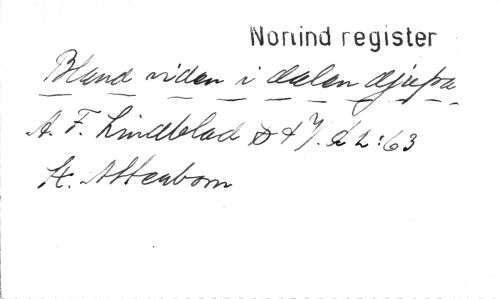 Norlind register
Bland viden i dalen djupa
A. F. Lindblad D 47. d 2:63
H. Attenbom